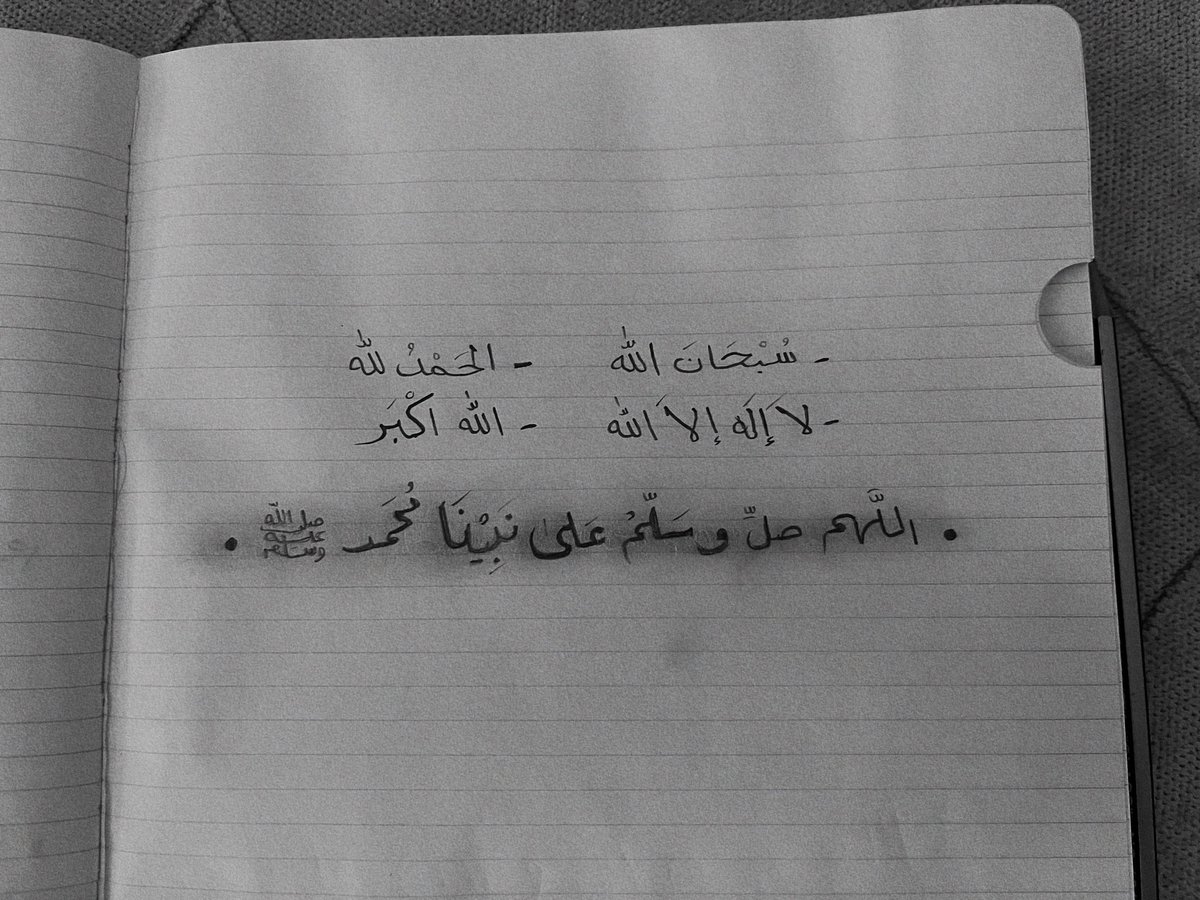 - سُبْحَانَ اللّٰه - الحَمْدُ للّٰه
- لاَ إِلَه إلاَ اللّٰه - اللّٰه اكْبَر
• اللَّهم صلِّ و سَلِّمْ عَلى نَبِيْنَا مُحَمد ﷺ •